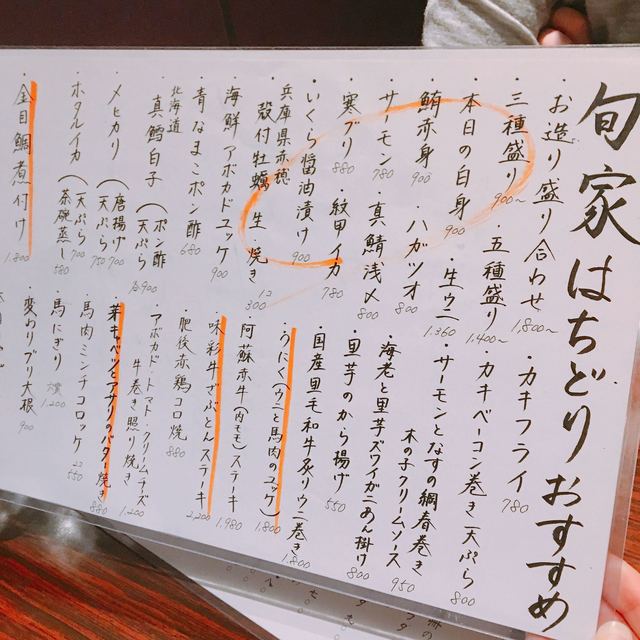 旬家はちどりおすすめ
・お造り盛り合わせ 1,800~
三種盛り 900~ ・五種盛り 1,400~
・本日の白身 900 ・生ウニ 1,360
・鮪赤身 900 ・ハガツオ 800
・サーモン 780 ・真鯖浅〆 800
・寒ブリ 880 ・紋甲イカ 780
・いくら醤油漬け 900
・兵庫県赤穂
殻付牡蠣 生・焼き 1コ 300
・海鮮アボカドユッケ 900
・青なまこポン酢 680
・北海道
真鱈白子 (ポン酢 天ぷら 各900
・メヒカリ (唐揚げ 700 天ぷら 750
・ホタルイカ (天ぷら 700 茶碗蒸し 580
・金目鯛煮付け 1,800
・カキフライ 780
・カキベーコン巻き天ぷら 800
・サーモンとなすの網春巻き
木の子クリームソース 950
・海老と里芋ズワイガニあん掛け 800
・里芋のから揚げ 550
・国産黒毛和牛炙りウニ巻き 1,800
・うにく(ウニと馬肉のユッケ) 1,800
・阿蘇赤牛(内モモ)ステーキ 1,980
・味彩牛ざぶとんステーキ 2,200
・肥後赤鶏コロ焼 880
・アボカド・トマト・クリームチーズ
牛巻き照り焼き 1,200
・芽キャベツとアサリのバター焼き 880
・馬肉ミンチコロッケ 2コ 550
・馬にぎり 1,200
・変わりブリ大根 900